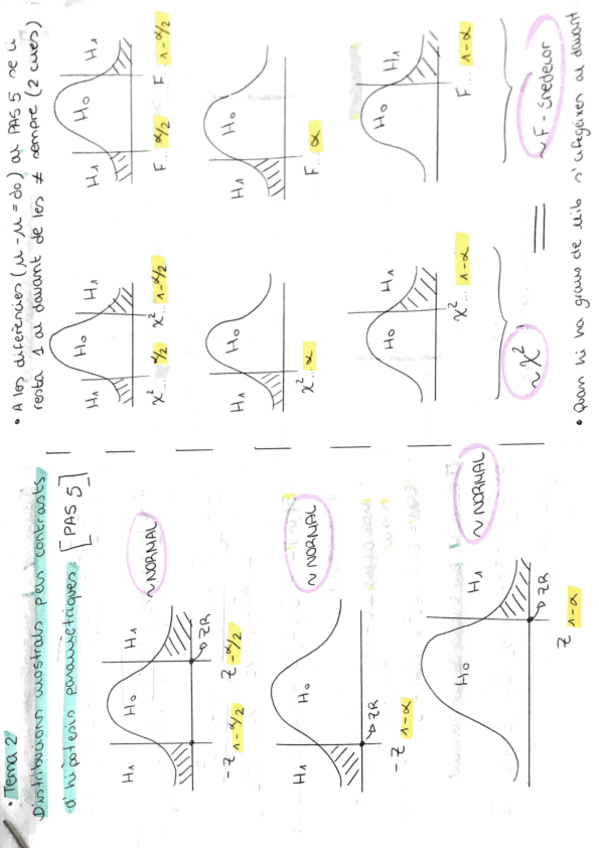 • Tema 2
Distribucions mostrals pels contrasts
d'hipòtesis paramètriques. [PAS 5]
H1 H0 H1
ZR
-Z 1-α/2 Z -α/2
~ NORMAL
H1 H0
ZR
-Z 1-α
~ NORMAL
H0 H1
ZR
Z 1-α
~ NORMAL
• A les diferències (μ-μ = do) al PAS 5 se li
resta 1 al davant de les ≠ sempre (2 cues)
H1 H0 H1
χ² ... α/2 χ² ... 1-α/2
H1 H0 H1
F ... α/2 F ... 1-α/2
H1 H0
χ² ... α
H1 H0
F ... α
H0 H1
χ² ... 1-α
H0 H1
F ... 1-α
~ χ² = ~ F - Snedecor
• Quan hi ha graus de llib s'afegeixen al davant